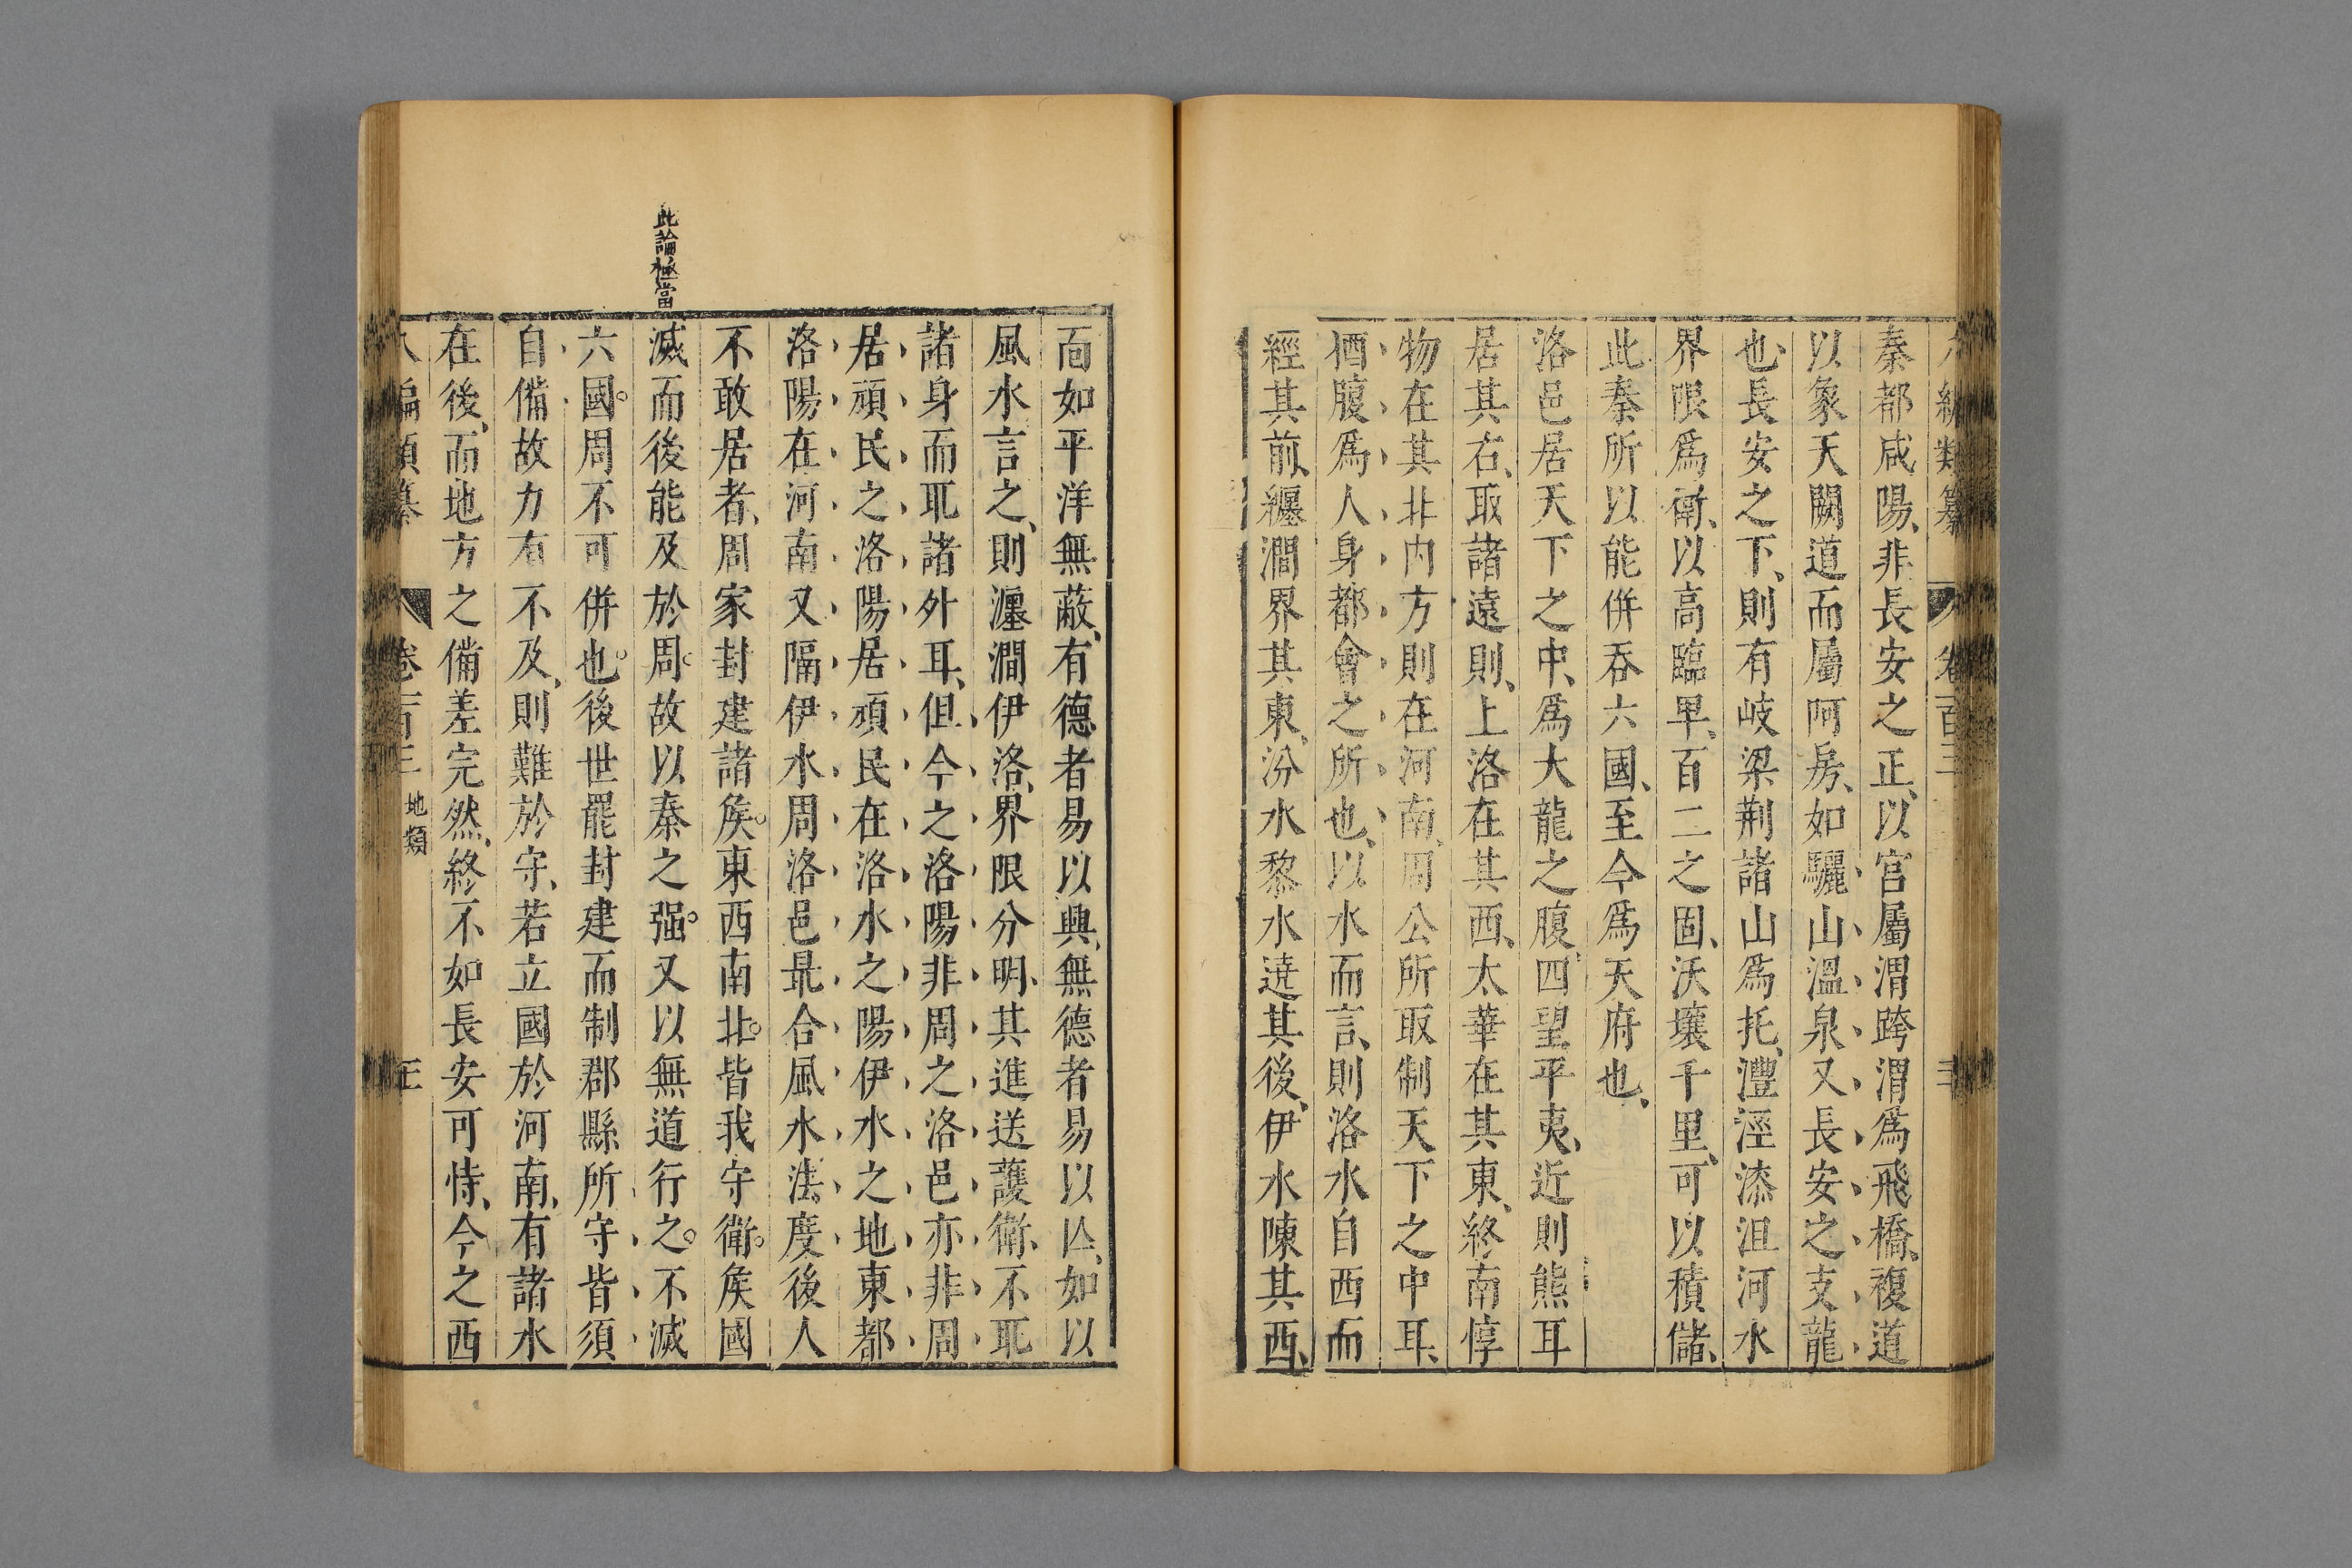 八編類纂 卷百三
秦都咸陽、非長安之正、以宮屬渭跨渭爲飛橋、複道
以象天闕道而屬阿房、如驪山溫泉、又長安之支龍
也、長安之下、則有岐梁荆諸山爲托、灃涇漆沮河水
界限爲衛、以高臨卑、百二之固、沃壤千里、可以積儲、
此秦所以能併吞六國、至今爲天府也、
洛邑居天下之中、爲大龍之腹、四望平夷、近則熊耳
居其右、取諸遠則、上洛在其西、太華在其東、終南惇
物在其非内方則在河南、周公所取制天下之中耳、
猶腹爲人身都會之所也、以水而言、則洛水自西而
經其前、纏澗界其東、汾水黎水遶其後、伊水陳其西、
面如平洋無蔽、有德者易以興、無德者易以亾、如以
風水言之、則瀍澗伊洛、界限分明、其進送護衛、不取
諸身而取諸外耳、但今之洛陽非周之洛邑亦非周
居頑民之洛陽居頑民在洛水之陽伊水之地東都
洛陽在河南又隔伊水周洛邑最合風水法度後人
不敢居者、周家封建諸矦。東西南北。皆我守衛。矦國
滅而後能及於周。故以秦之强。又以無道行之。不滅
六國。周不可併也。後世罷封建而制郡縣所守皆須
自備故力有不及、則難於守、若立國於河南、有諸水
在後、而地方之備差完然、終不如長安可恃、今之西
此論極當
八編類纂 卷一百三 地類